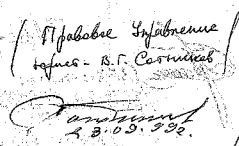 ( Правовое Управление
юрист - В.Г. Сотников )
23.09.992.